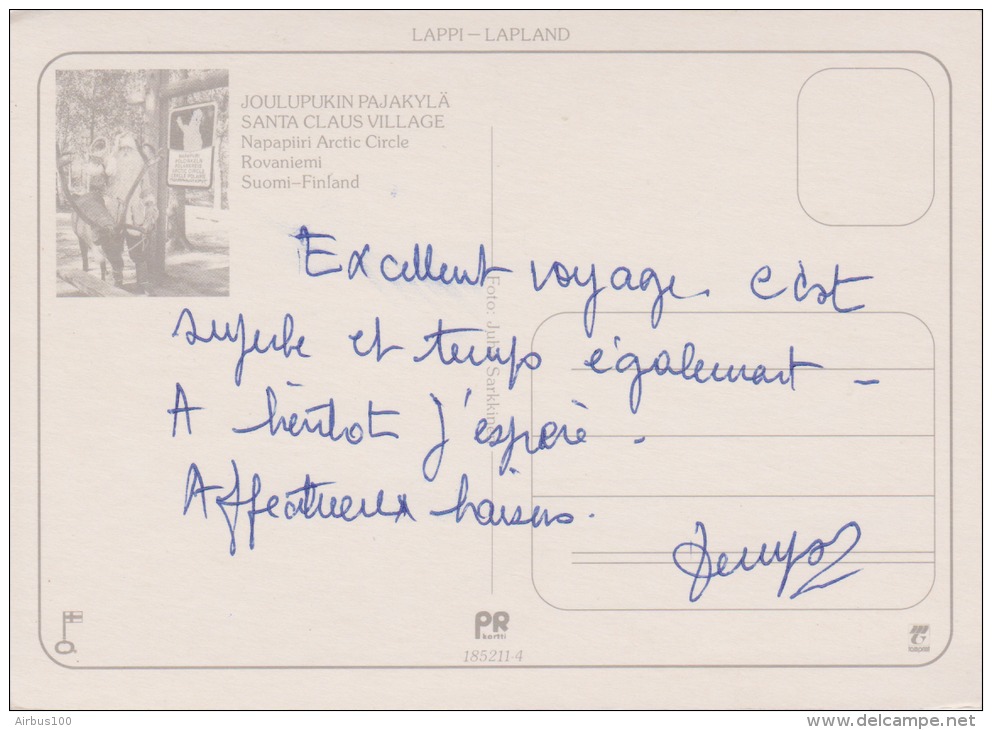 LAPPI – LAPLAND
JOULUPUKIN PAJAKYLÄ
SANTA CLAUS VILLAGE
Napapiiri Arctic Circle
Rovaniemi
Suomi–Finland
Excellent voyage c'est
superbe et temps également –
A bientot j'espère.
Affectueux baisers.
Foto: Juha Sarkkinen
PR
kortti
185211-4
Airbus100
www.delcampe.net